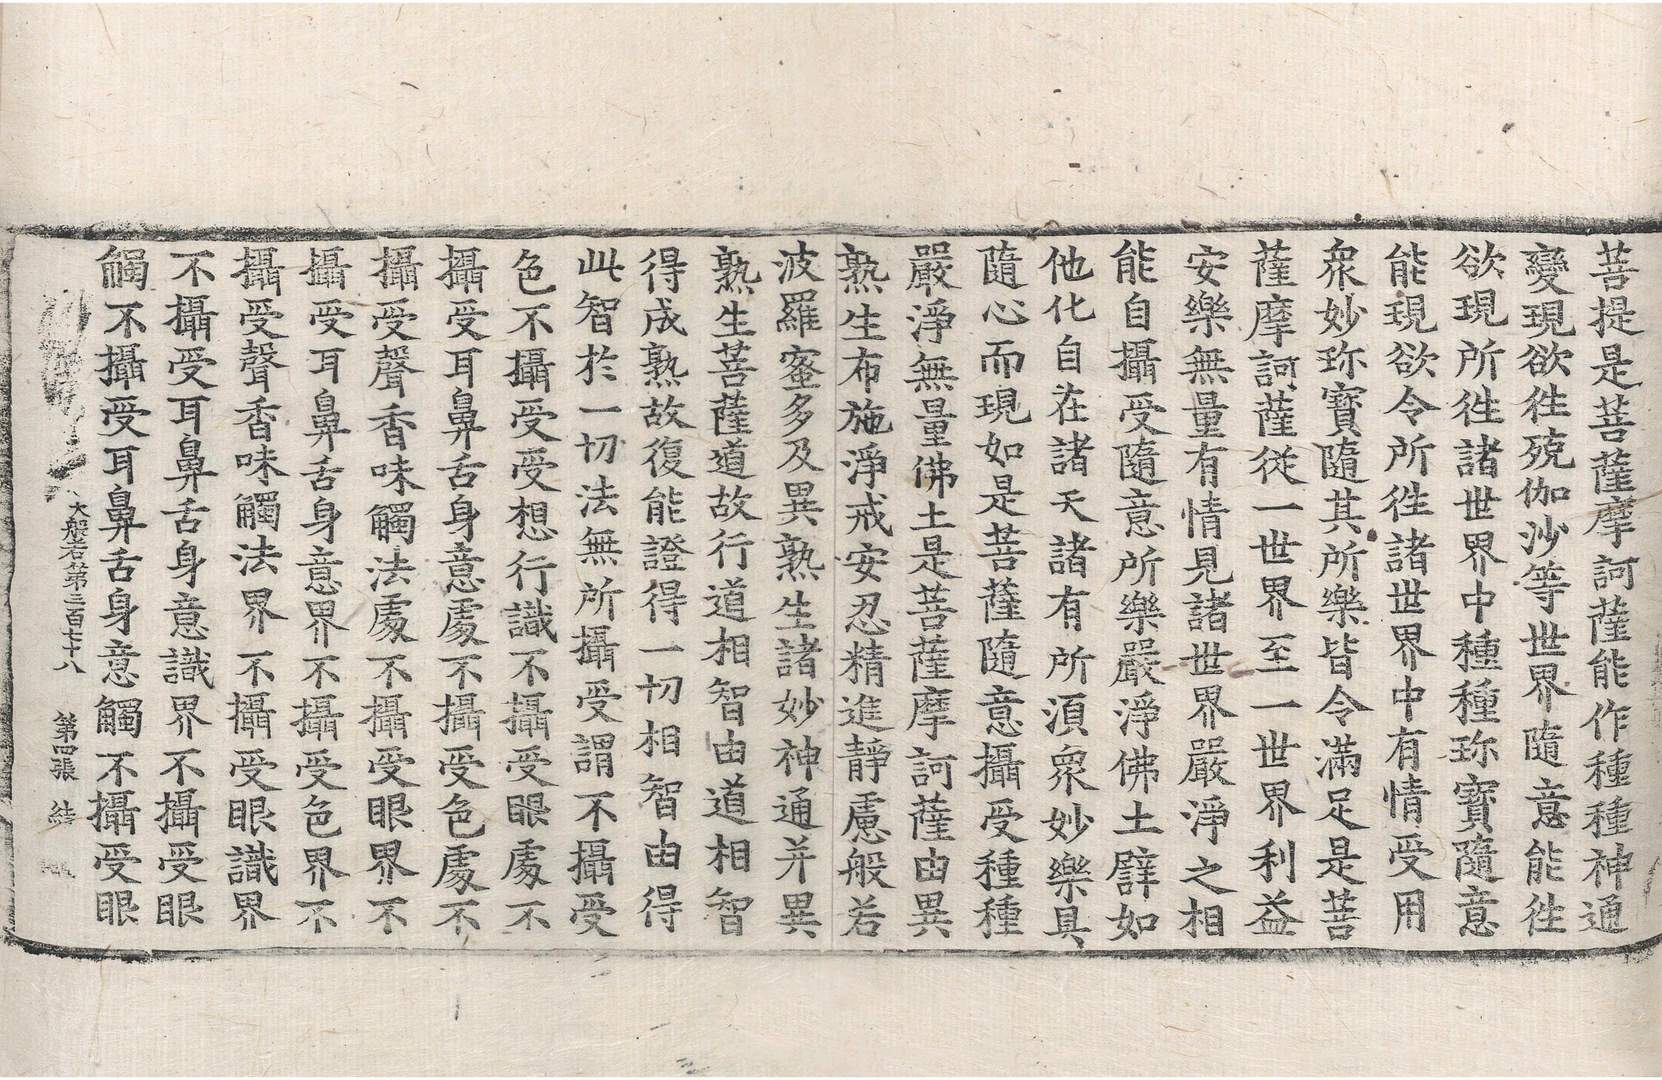 菩提是菩薩摩訶薩能作種種神通
變現欲徃殑伽沙等世界隨意能徃
欲現所徃諸世界中種種珎寶隨意
能現欲令所徃諸世界中有情受用
衆妙珎寶隨其所樂皆令滿足是菩
薩摩訶薩從一世界至一世界利益
安樂無量有情見諸世界嚴淨之相
能自攝受隨意所樂嚴淨佛土譬如
他化自在諸天諸有所湏衆妙樂具
隨心而現如是菩薩隨意攝受種種
嚴淨無量佛土是菩薩摩訶薩由異
熟生布施淨戒安忍精進靜慮般若
波羅蜜多及異熟生諸妙神通并異
熟生菩薩道故行道相智由道相智
得成熟故復能證得一切相智由得
此智於一切法無所攝受謂不攝受
色不攝受受想行識不攝受眼處不
攝受耳鼻舌身意處不攝受色處不
攝受聲香味觸法處不攝受眼界不
攝受耳鼻舌身意界不攝受色界不
攝受聲香味觸法界不攝受眼識界
不攝受耳鼻舌身意識界不攝受眼
觸不攝受耳鼻舌身意觸不攝受眼
大般若第三百七十八 第四張 結